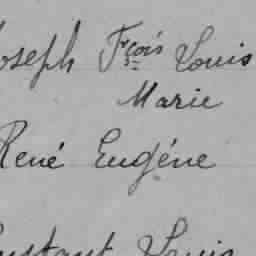 Joseph Frçois Louis
Marie
René Eugéne
Constant Louis